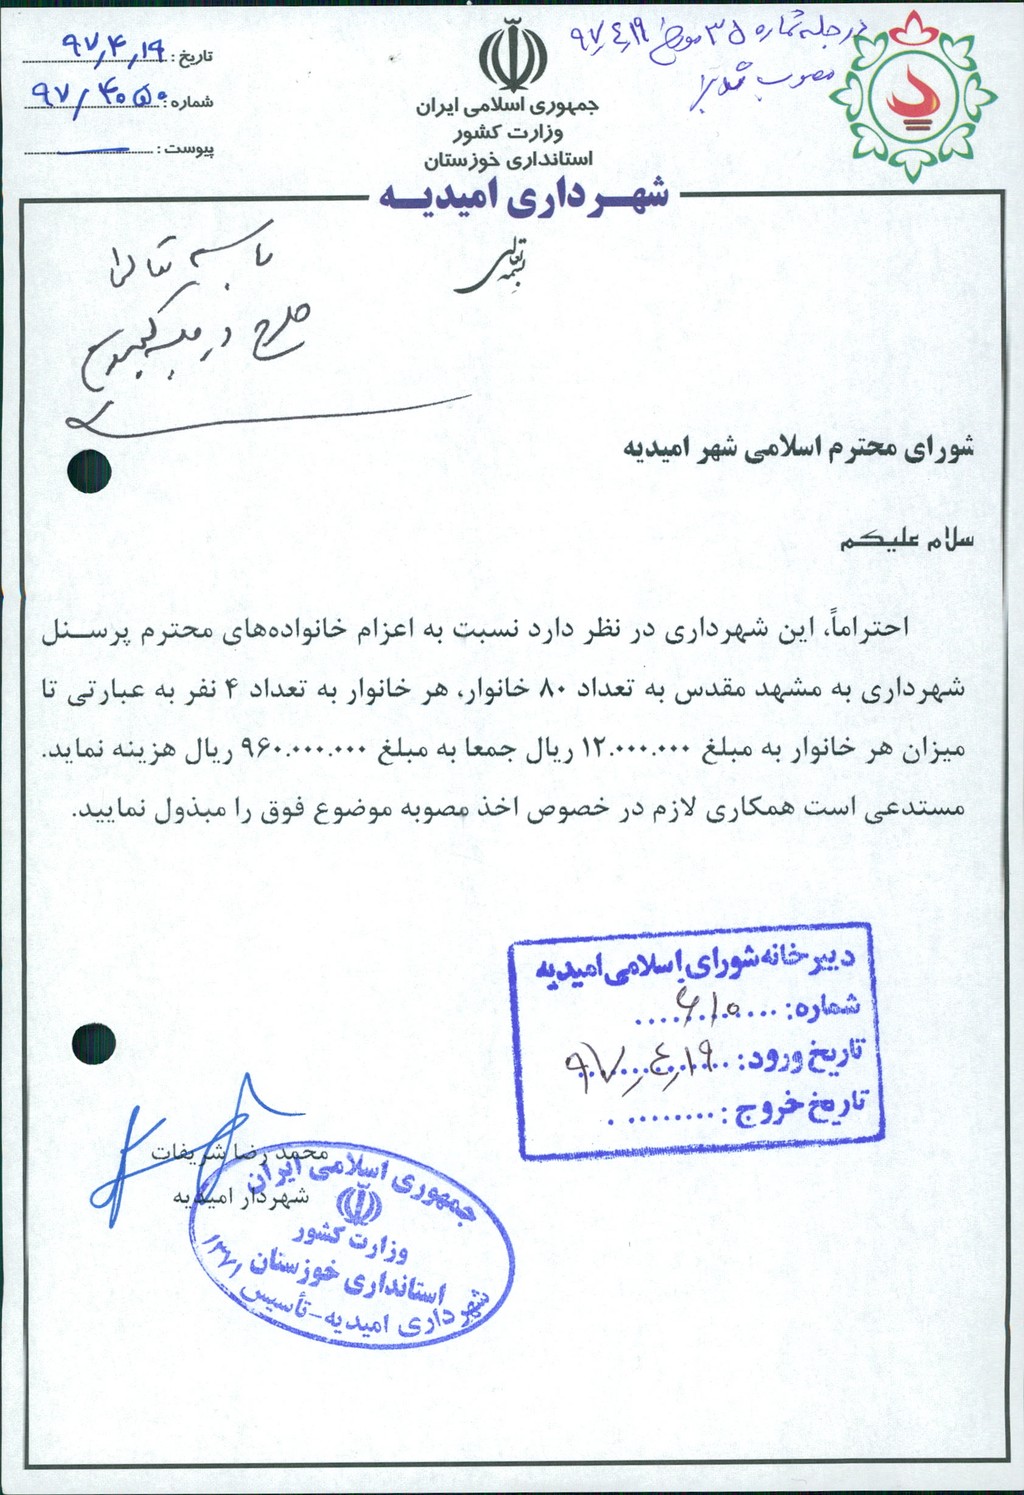 در جلسه شماره ۳۵ مورخ ۹۷,۴,۱۹
مصوب شد
تاریخ: ۹۷,۴,۱۹
شماره: ۹۷/۴۰۵۰
پیوست:
جمهوری اسلامی ایران
وزارت کشور
استانداری خوزستان
شهرداری امیدیه
بسمه تعالی
باسمه تعالی
طرح در جلسه کمیسیون
شورای محترم اسلامی شهر امیدیه
سلام علیکم
احتراماً، این شهرداری در نظر دارد نسبت به اعزام خانواده‌های محترم پرسنل
شهرداری به مشهد مقدس به تعداد ۸۰ خانوار، هر خانوار به تعداد ۴ نفر به عبارتی تا
میزان هر خانوار به مبلغ ۱۲.۰۰۰.۰۰۰ ریال جمعا به مبلغ ۹۶۰.۰۰۰.۰۰۰ ریال هزینه نماید.
مستدعی است همکاری لازم در خصوص اخذ مصوبه موضوع فوق را مبذول نمایید.
دبیرخانه شورای اسلامی امیدیه
شماره: ۶۱۰
تاریخ ورود: ۹۷,۴,۱۹
تاریخ خروج:
محمد رضا شریفات
شهردار امیدیه
جمهوری اسلامی ایران
وزارت کشور
استانداری خوزستان
شهرداری امیدیه-تأسیس ۱۳۷۱